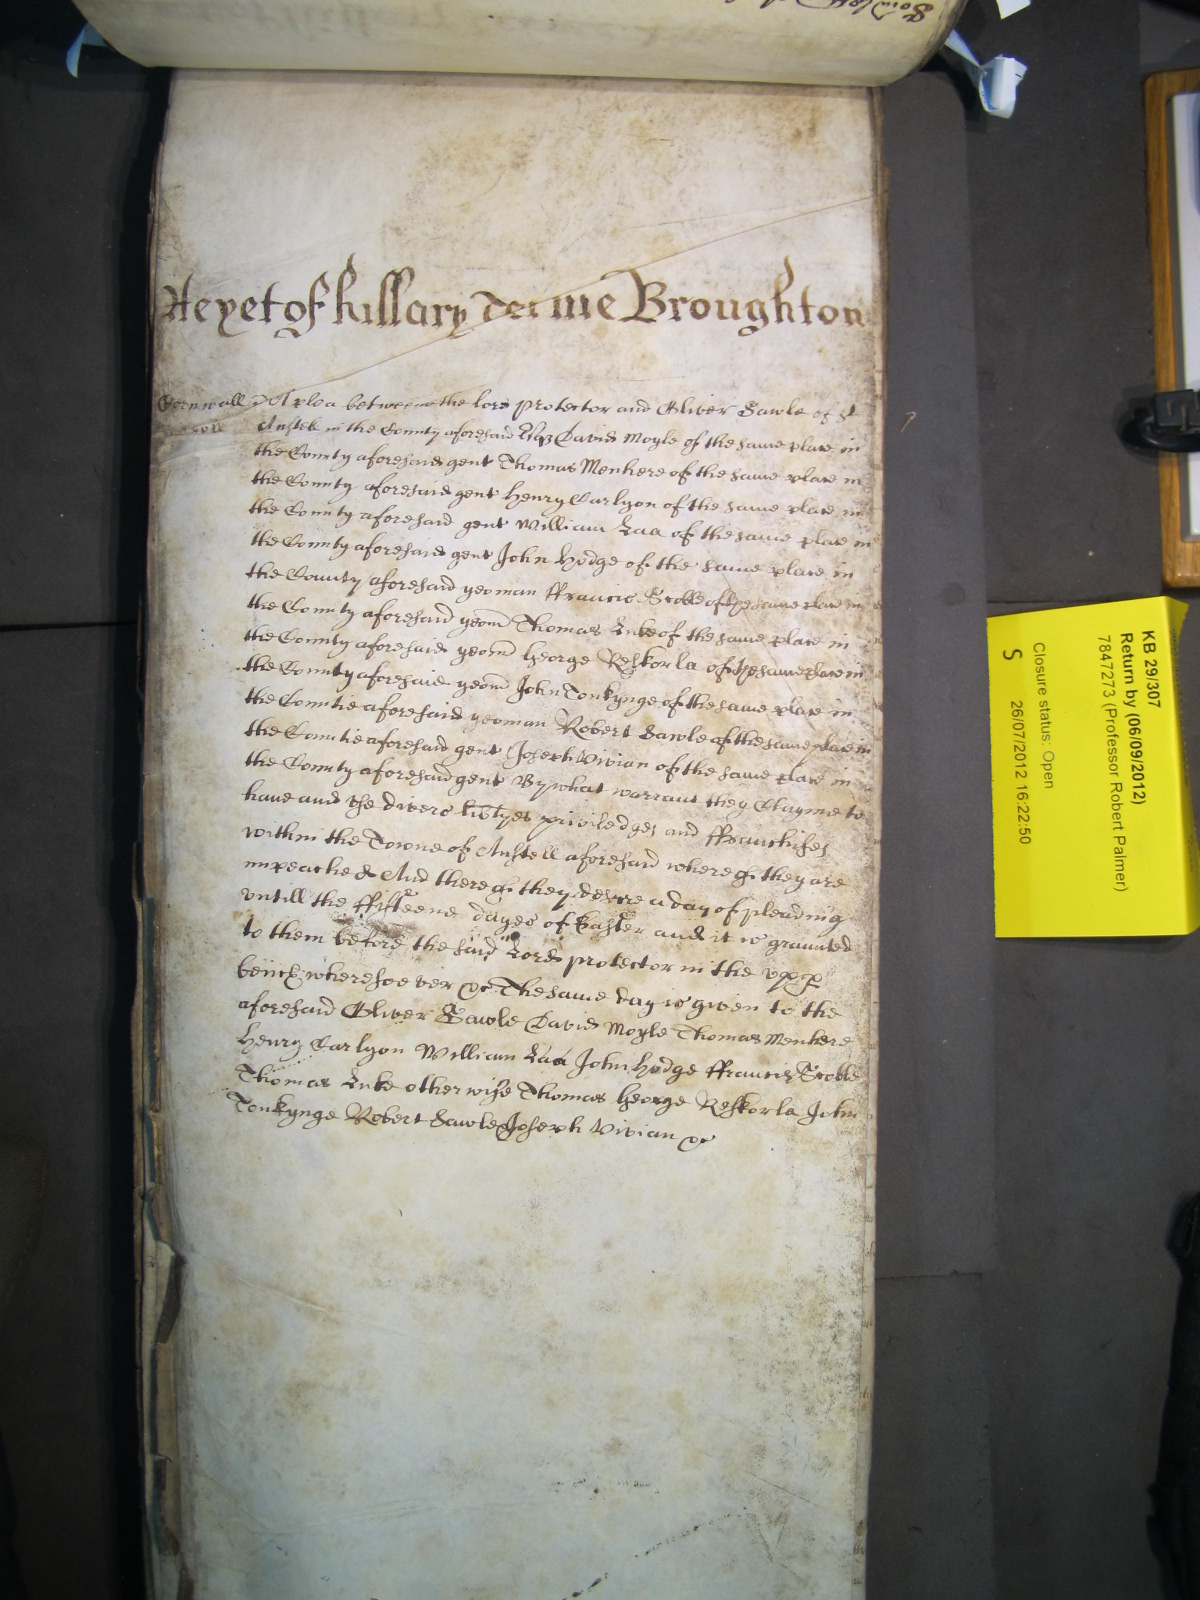 As yet of hillary Terme Broughton
Cornwall A plea betweene the lord protector and Oliver Sawle of St
Austle in the County aforesaid Esqr David Moyle of the same place in
the County aforesaid gent Thomas Menhere of the same place in
the County aforesaid gent Henry Carlyon of the same place in
the County aforesaid gent William Laa of the same place in
the County aforesaid gent John Hodge of the same place in
the County aforesaid yeoman ffrancis Scoble of the same place in
the County aforesaid yeom Thomas Luke of the same place in
the County aforesaid yeom George Reskorla of the same place in
the County aforesaid yeom John Tonkynge of the same place in
the Countie aforesaid yeoman Robert Sawle of the same place in
the Countie aforesaid gent Joseph Vivian of the same place in
the County aforesaid gent By what warrant they Clayme to
have and vse divers libtyes priviledges and ffranchises
within the Towne of Austell aforesaid whereof they are
impeached And thereof they desire a day of pleading
vntill the ffifteene dayes of Easter and it is graunted
to them before the said Lord protector in the vpp
bench wheresoever &c The same day is given to the
aforesaid Oliver Sawle David Moyle Thomas Menhere
Henry Carlyon William Laa John Hodge ffrancis Scoble
Thomas Luke otherwise Thomas George Reskorla John
Tonkynge Robert Sawle Joseph Vivian &c
KB 29/307
Return by (06/09/2012)
7847273 (Professor Robert Palmer)
Closure status: Open
26/07/2012 16:22:50
S